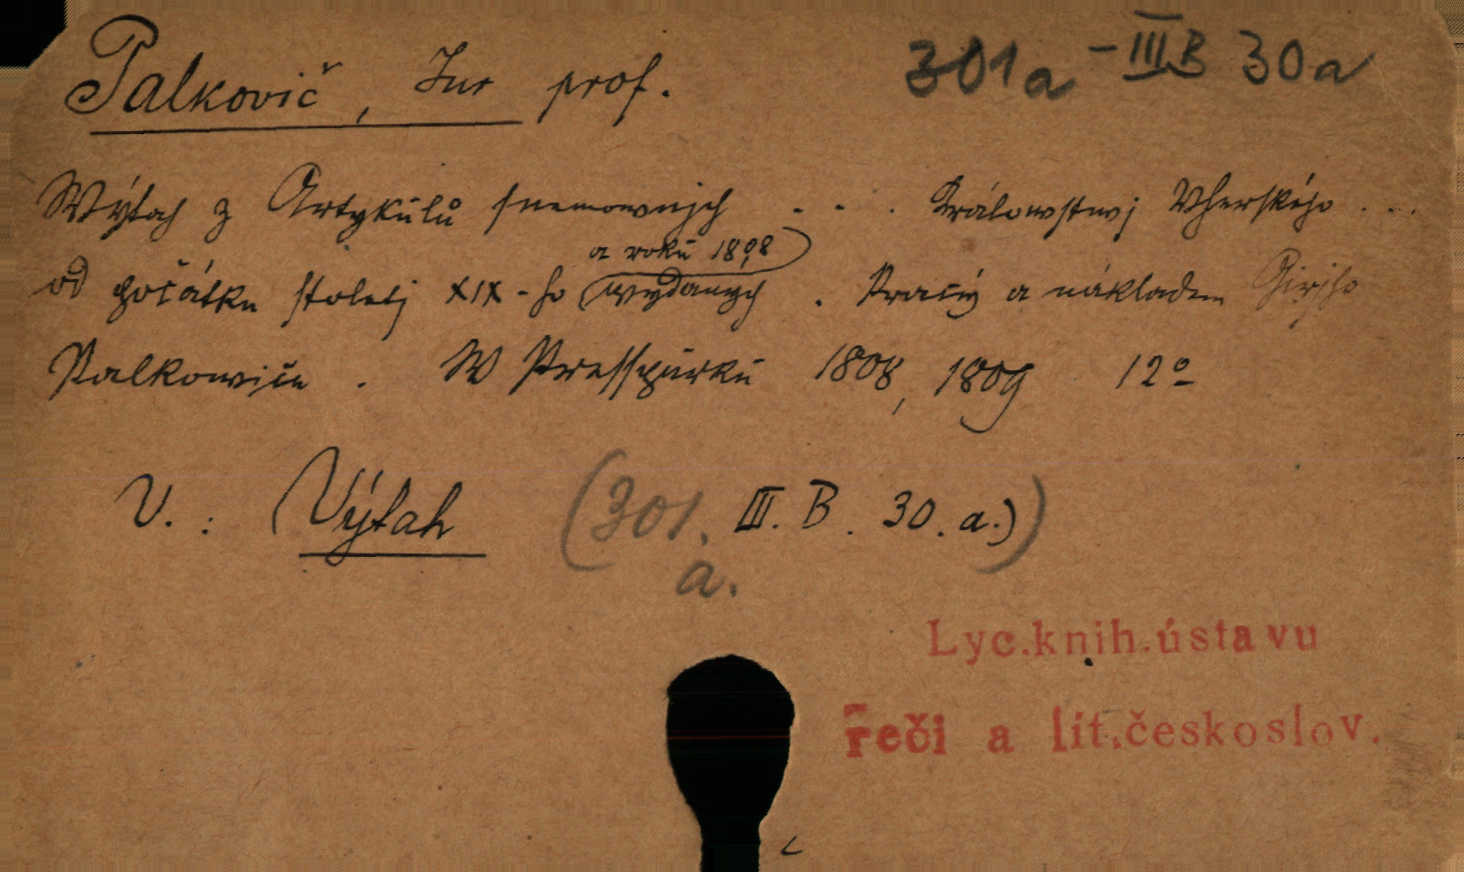 Palkovič, Jur prof. 301a - III B 30a
Weýtah z Artykulů snemownjch . . . Králowstwj Vherského . . .
a roků 1808
od počátku stoletj XIX-ho (wydaných . Pracý a nákladem Girjho
Palkowiče . W Presspůrků 1808, 1809 12º
V. : Výtah (301. III. B. 30. a.)
a.
Lyc.knih.ústavu
řeči a lit.českoslov.